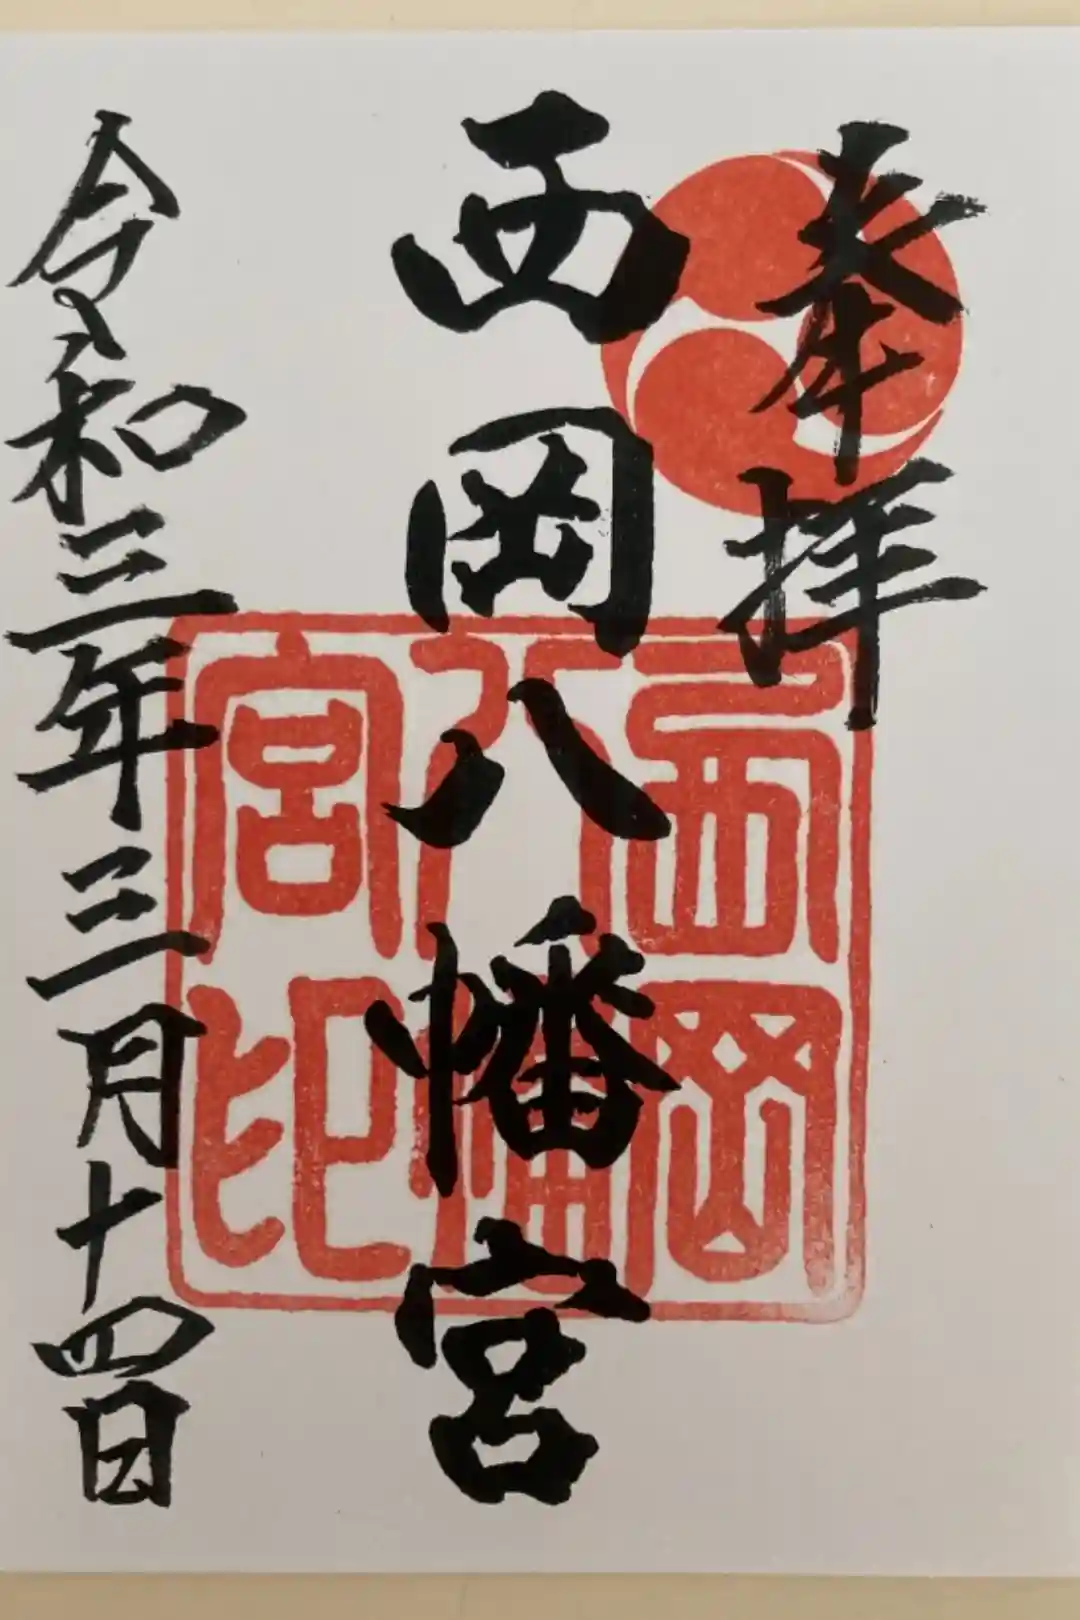 奉拝
西岡八幡宮
西岡
八幡
宮印
令和三年三月十四日